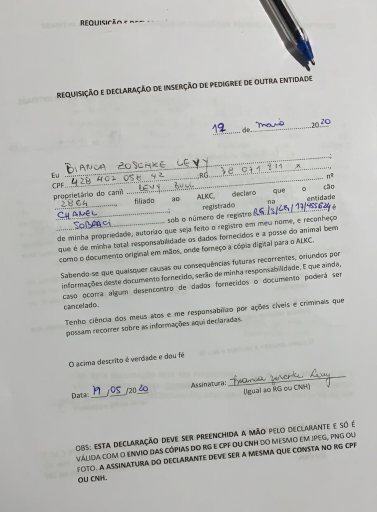 REQUISIÇÃO E DECLARAÇÃO DE INSERÇÃO DE PEDIGREE DE OUTRA ENTIDADE
19 de maio 2020
Eu BIANCA ZOSCHKE LEVY,
CPF 428 402 058 42 RG 38 091 811 X,
proprietário do canil LEVY BULL nº
2864 filiado ao ALKC, declaro que o cão
CHANEL registrado na entidade
SOBRACI sob o número de registro
de minha propriedade, autorizo que seja feito o registro em meu nome, e reconheço
que é de minha total responsabilidade os dados fornecidos e a posse do animal bem
como o documento original em mãos, onde forneço a cópia digital para o ALKC.
Sabendo-se que quaisquer causas ou consequências futuras recorrentes, oriundos por
informações deste documento fornecido, serão de minha responsabilidade. E que ainda,
caso ocorra algum desencontro de dados fornecidos o documento poderá ser
cancelado.
Tenho ciência dos meus atos e me responsabilizo por ações cíveis e criminais que
possam recorrer sobre as informações aqui declaradas.
O acima descrito é verdade e dou fé
Data: 19/05/2020 Assinatura:
(Igual ao RG ou CNH)
OBS: ESTA DECLARAÇÃO DEVE SER PREENCHIDA A MÃO PELO DECLARANTE E SÓ É
VÁLIDA COM O ENVIO DAS CÓPIAS DO RG E CPF OU CNH DO MESMO EM JPEG, PNG OU
FOTO. A ASSINATURA DO DECLARANTE DEVE SER A MESMA QUE CONSTA NO RG CPF
OU CNH.